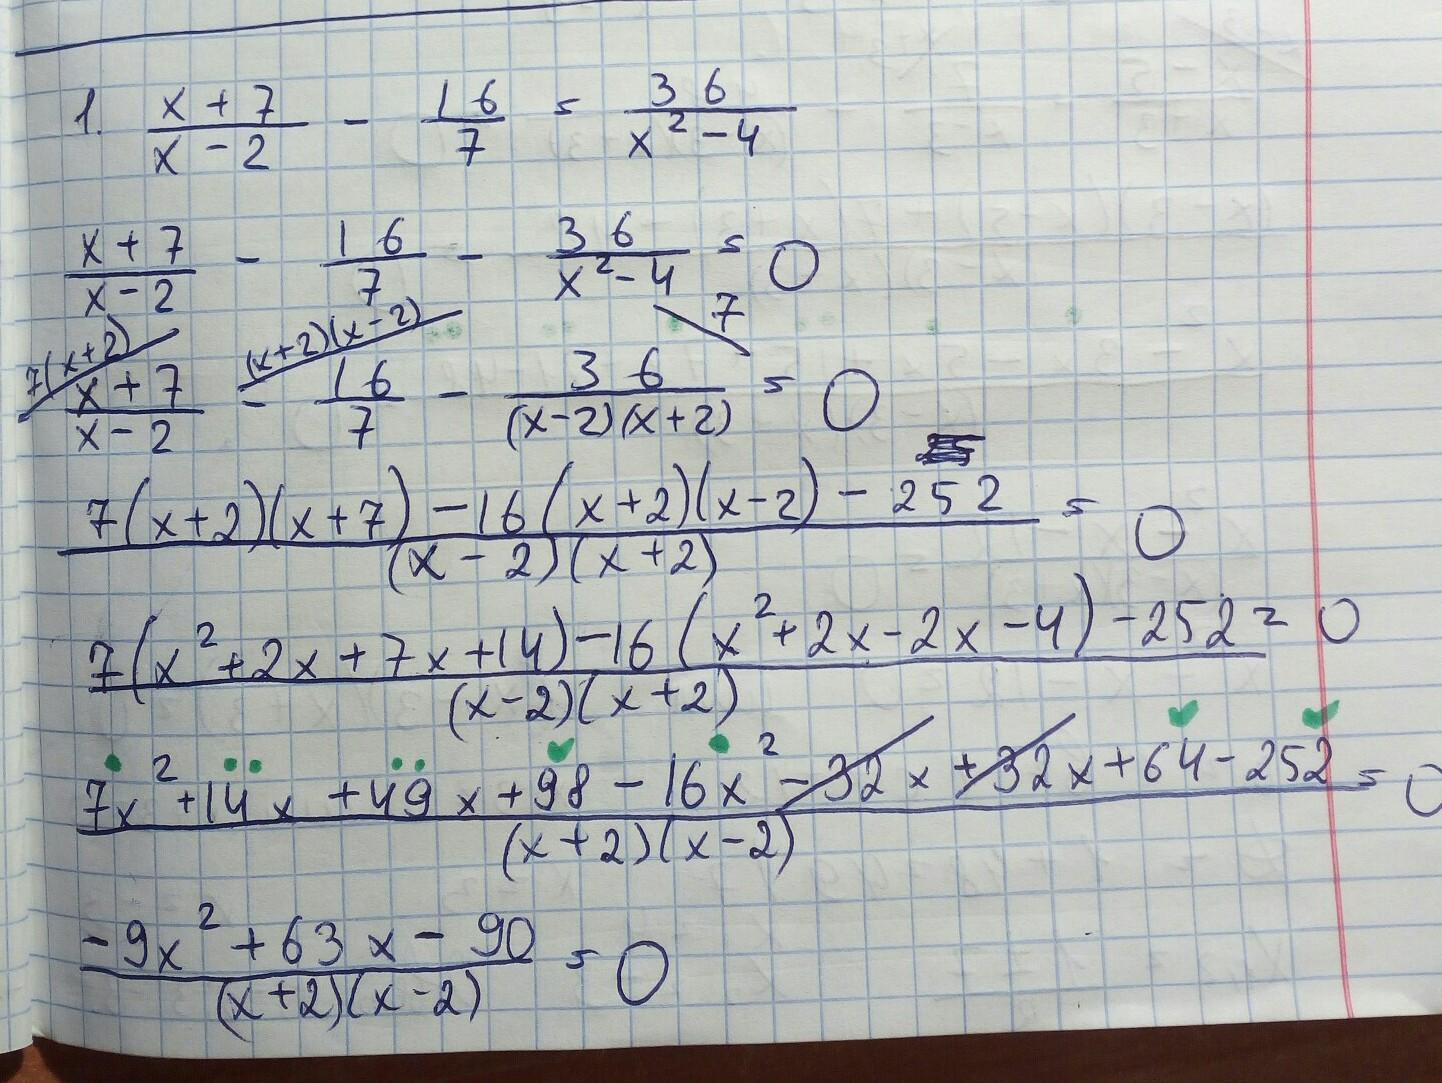 1. (x + 7)/(x - 2) - 16/7 = 36/(x² - 4)
(x + 7)/(x - 2) - 16/7 - 36/(x² - 4) = 0
7(x+2) (x+2)(x-2) 7
(x + 7)/(x - 2) - 16/7 - 36/((x-2)(x+2)) = 0
(7(x+2)(x+7) - 16(x+2)(x-2) - 252)/((x - 2)(x+2)) = 0
(7(x² + 2x + 7x + 14) - 16(x² + 2x - 2x - 4) - 252)/((x-2)(x+2)) = 0
(7x² + 14x + 49x + 98 - 16x² - 32x + 32x + 64 - 252)/((x+2)(x-2)) = 0
(-9x² + 63x - 90)/((x+2)(x-2)) = 0